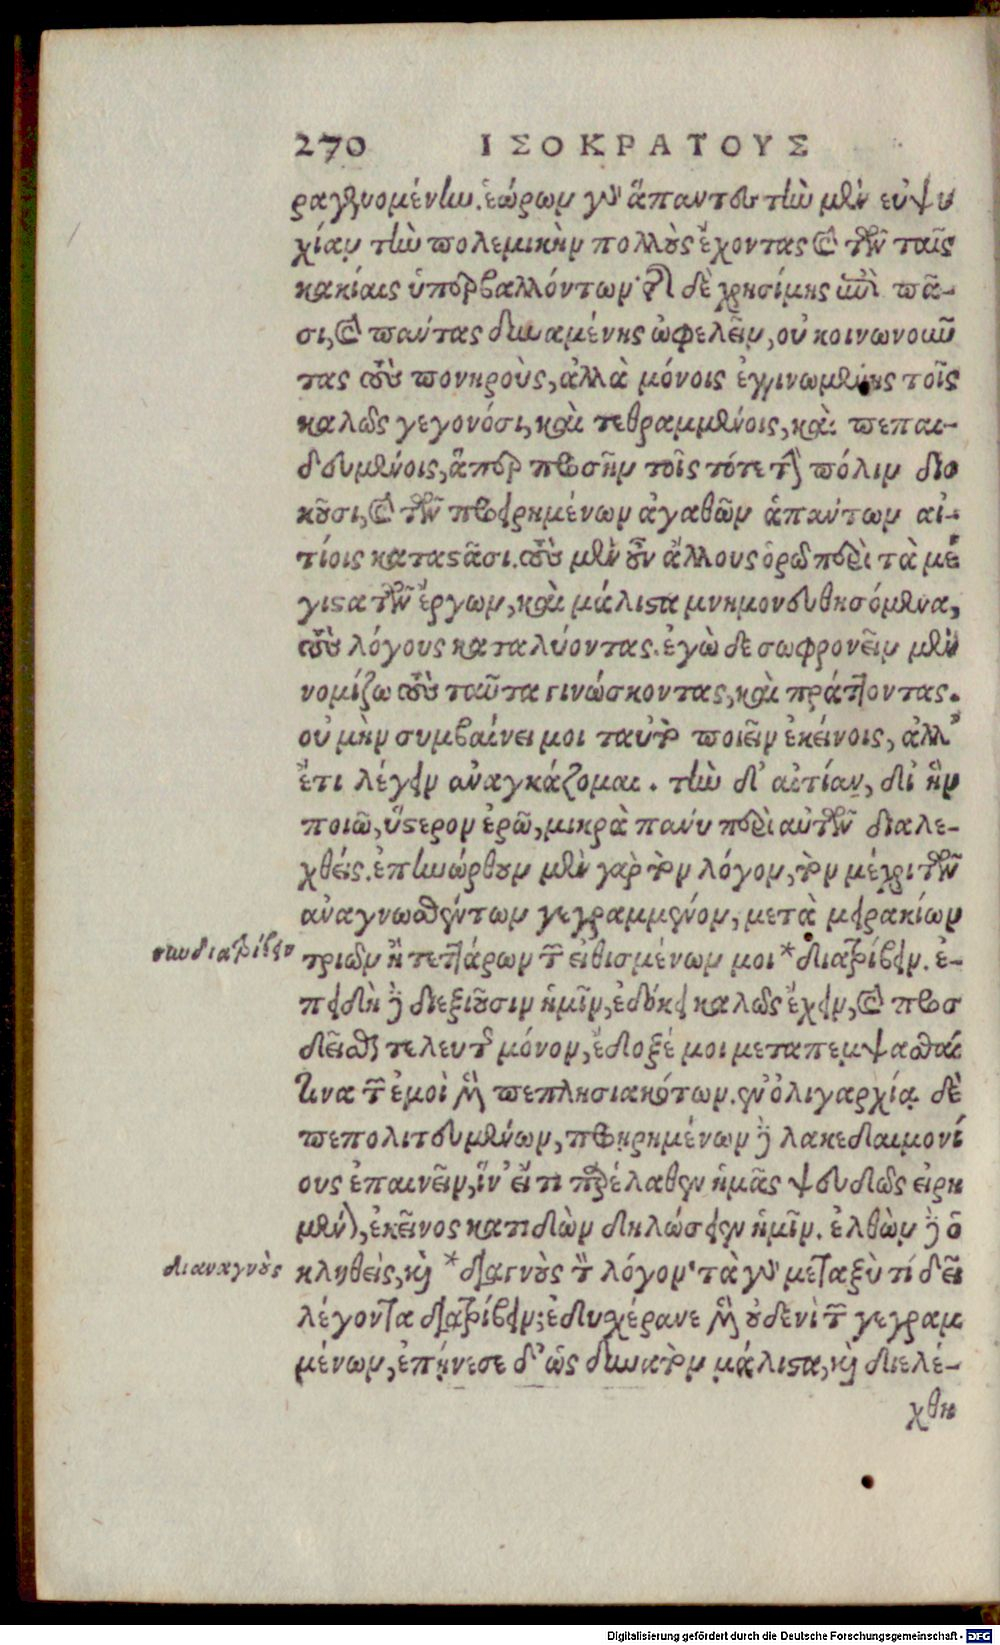 270 ΙΣΟΚΡΑΤΟΥΣ
ραγινομένην. ἑώρων γὰρ ἅπαντας τὴν μὲν εὐψυ
χίαν τὴν πολεμικὴν πολλοὺς ἔχοντας καὶ τῶν ταῖς
κακίαις ὑπερβαλλόντων· τῆς δὲ χρησίμης ἐπὶ πᾶ-
σι, καὶ πάντας δυναμένης ὠφελεῖν, οὐ κοινωνοῦν
τας τοὺς πονηροὺς, ἀλλὰ μόνοις ἐγγινωμένης τοῖς
καλῶς γεγονόσι, καὶ τεθραμμένοις, καὶ πεπαι-
δευμένοις, ἅπερ προσῆν τοῖς τότε τὴν πόλιν διοι
κοῦσι, καὶ τῶν προειρημένων ἀγαθῶν ἁπάντων αἰ-
τίοις καταστᾶσι. τοὺς μὲν οὖν ἄλλους ὁρῶ περὶ τὰ μέ
γιστα τῶν ἔργων, καὶ μάλιστα μνημονευθησόμενα,
τοὺς λόγους καταλύοντας. ἐγὼ δὲ σωφρονεῖν μὲν
νομίζω τοὺς ταῦτα γινώσκοντας, καὶ πράττοντας.
οὐ μὴν συμβαίνει μοι ταὐτὸ ποιεῖν ἐκείνοις, ἀλλ'
ἔτι λέγειν ἀναγκάζομαι. τὴν δ' αἰτίαν, δι' ἣν
ποιῶ, ὕστερον ἐρῶ, μικρὰ πάνυ περὶ αὐτῶν διαλε-
χθείς. ἐπηνώρθουν μὲν γὰρ τὸν λόγον, τὸν μέχρι τῶν
ἀναγνωσθέντων γεγραμμένον, μετὰ μειρακίων
συνδιατρίβειν
τριῶν ἢ τεττάρων τῶν εἰθισμένων μοι *διατρίβειν. ἐ-
πειδὴ δὲ διεξιοῦσιν ἡμῖν, ἐδόκει καλῶς ἔχειν, καὶ προσ
δεῖσθαι τελευτῆς μόνον, ἔδοξέ μοι μεταπέμψασθαί
τινα τῶν ἐμοὶ μὲν πεπλησιακότων. ἐν ὀλιγαρχίᾳ δὲ
πεπολιτευμένων, προῃρημένων δὲ λακεδαιμονί
ους ἐπαινεῖν, ἵν' εἴ τι παρέλαθεν ἡμᾶς ψευδῶς εἰρη
μένον, ἐκεῖνος κατιδὼν δηλώσειεν ἡμῖν. ἐλθὼν δὲ ὁ
διαναγνοὺς
κληθεὶς, καὶ *διαγνοὺς τὸν λόγον· τὰ γὰρ μεταξὺ τί δεῖ
λέγοντα διατρίβειν; ἐδυσχέρανε μὲν οὐδενὶ τῶν γεγραμ
μένων, ἐπῄνεσε δ' ὡς δυνατὸν μάλιστα, καὶ διελέ-
χθη
Digitalisierung gefördert durch die Deutsche Forschungsgemeinschaft - DFG